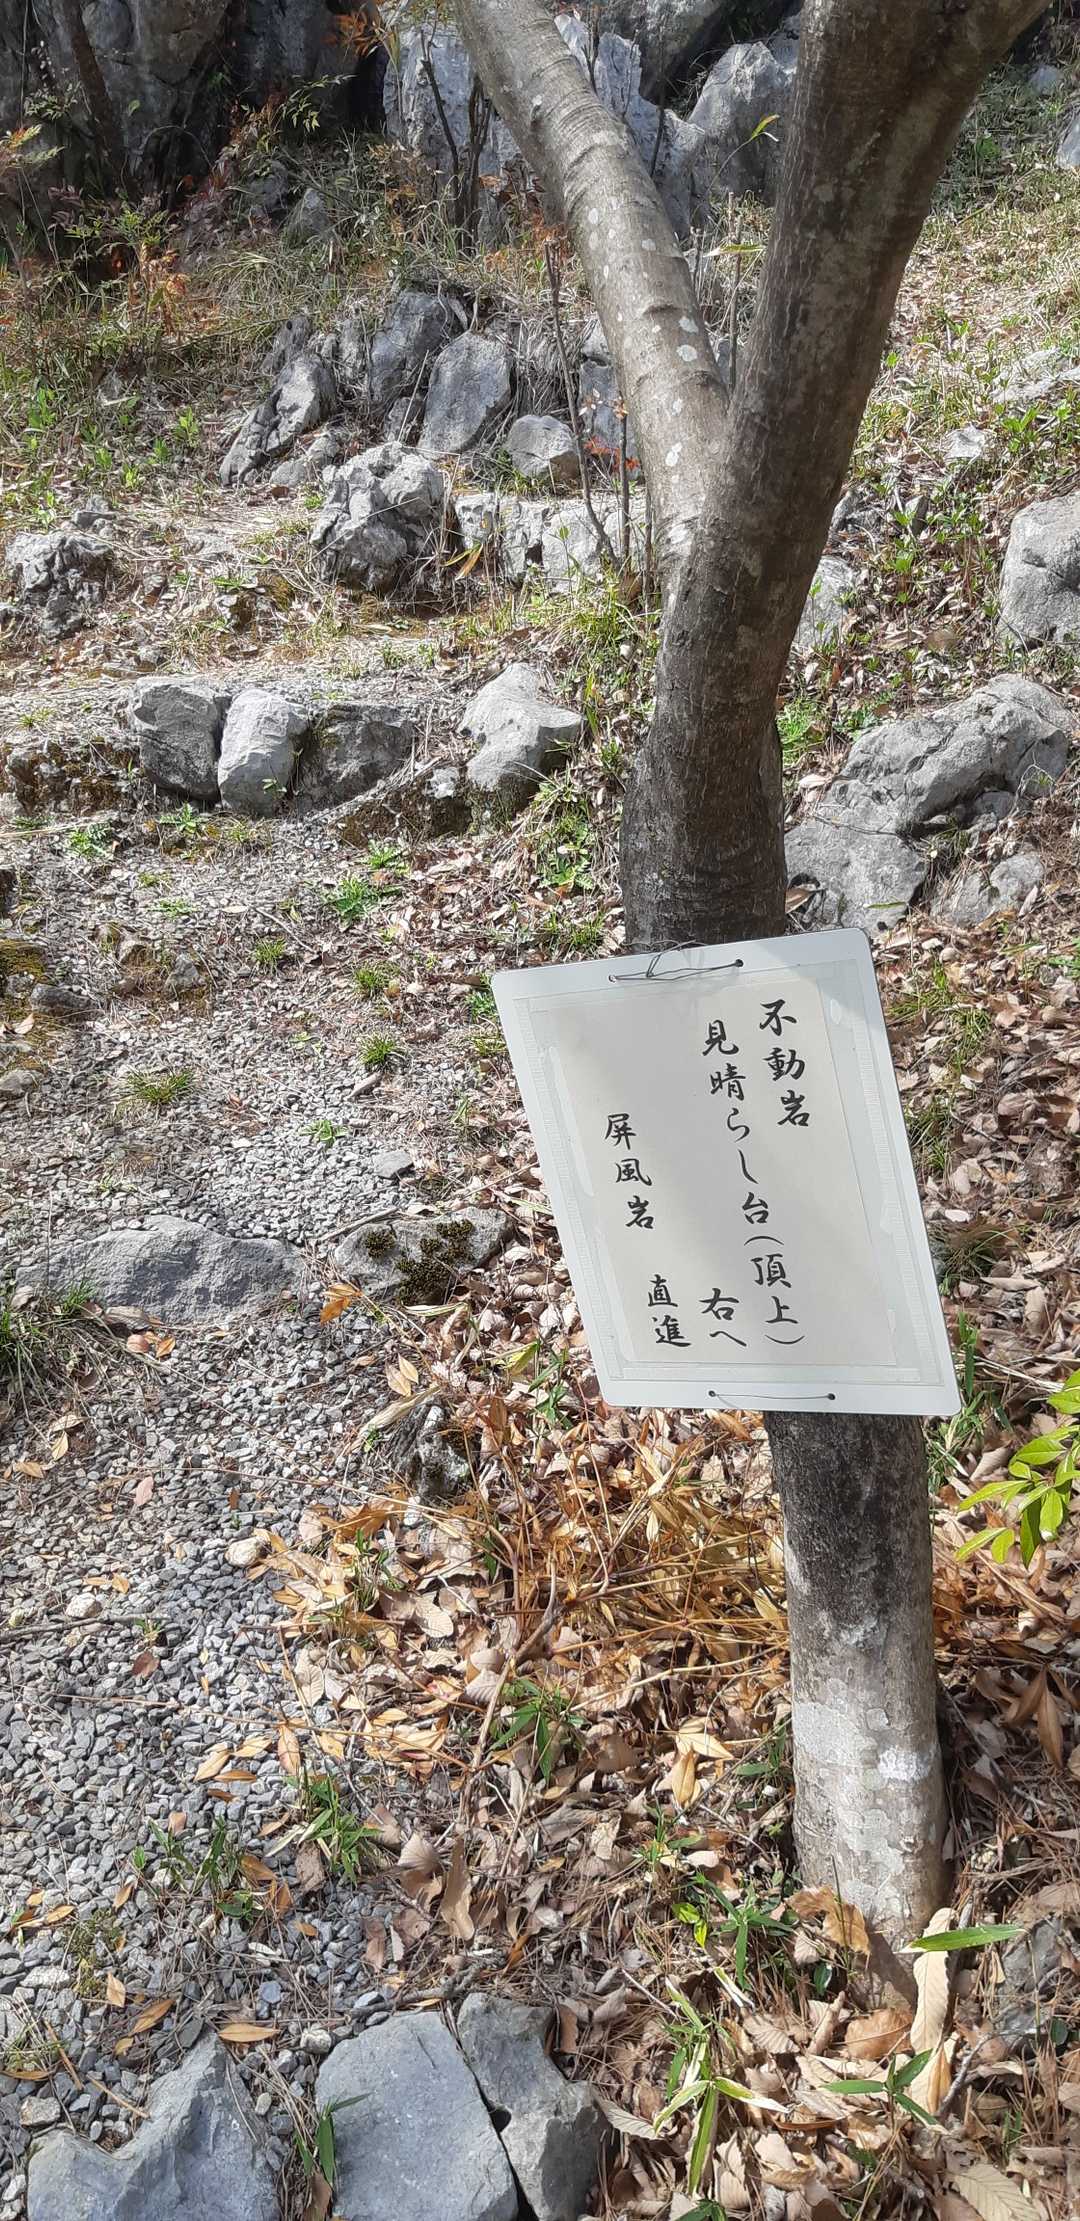 不動岩
見晴らし台(頂上)
右へ
屏風岩
直進